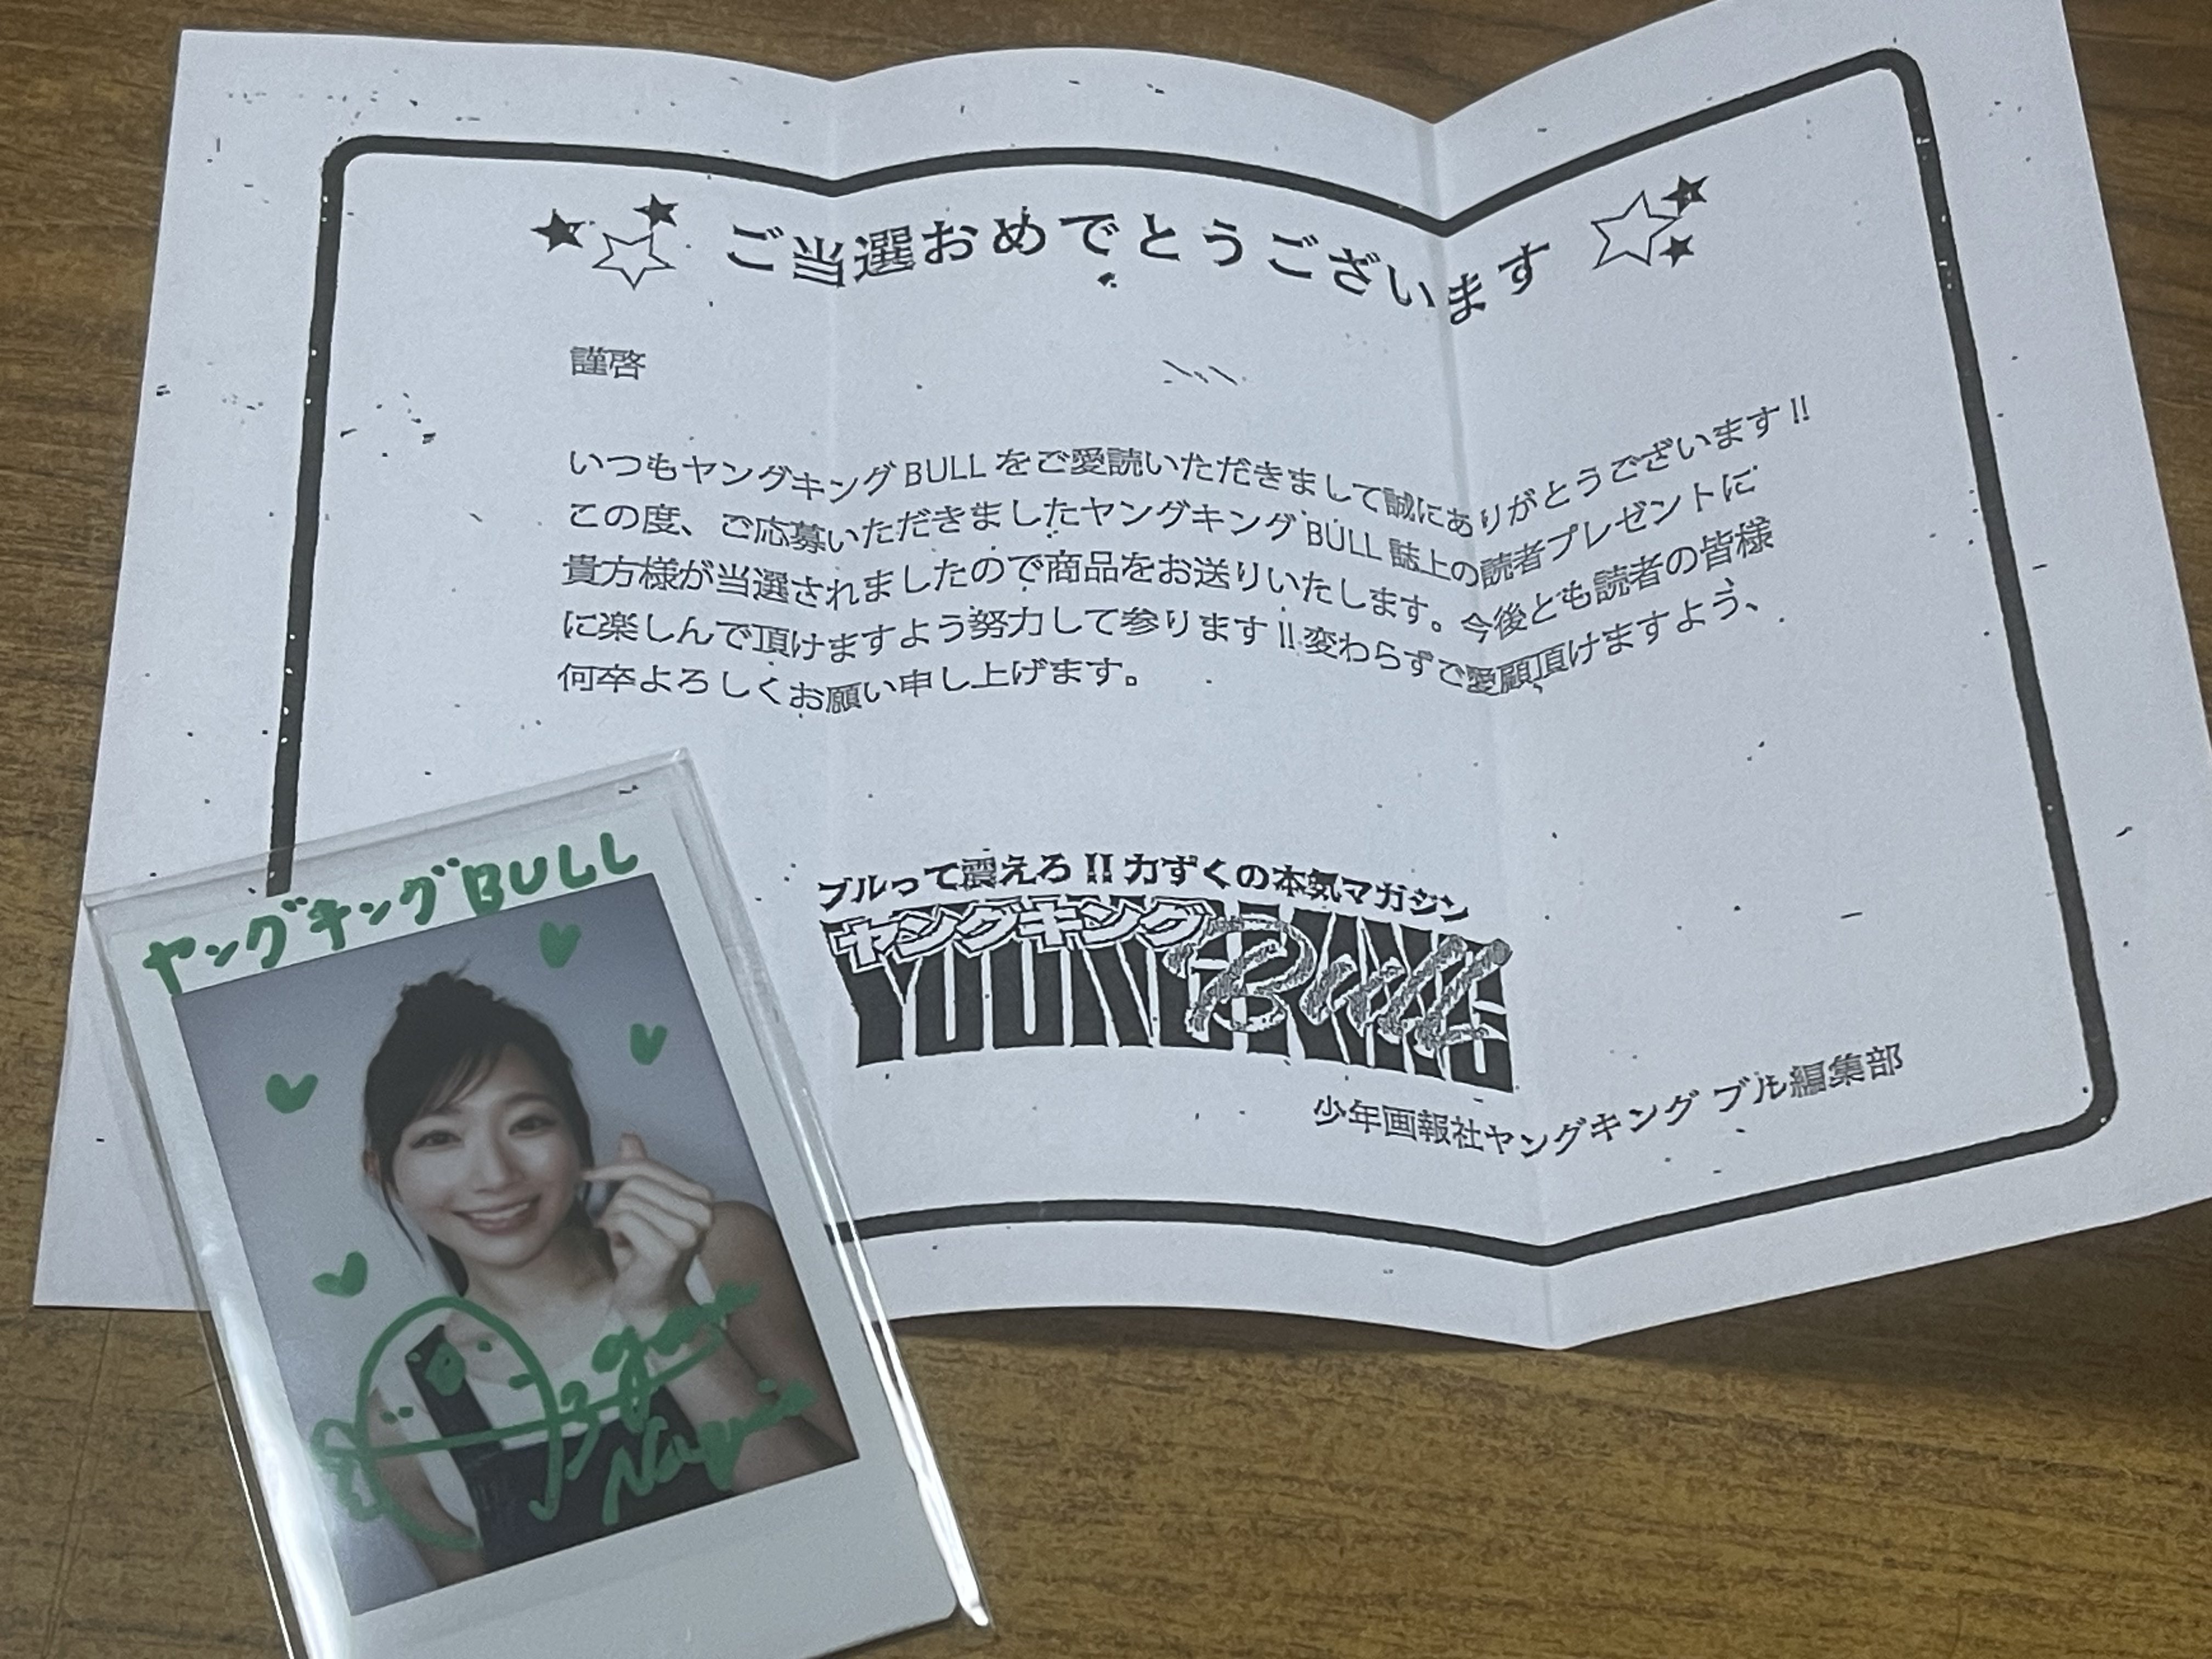 ご当選おめでとうございます
謹啓
いつもヤングキングBULLをご愛読いただきまして誠にありがとうございます!!
この度、ご応募いただきましたヤングキングBULL誌上の読者プレゼントに
貴方様が当選されましたので商品をお送りいたします。今後とも読者の皆様
に楽しんで頂けますよう努力して参ります!!変わらずご愛顧頂けますよう、
何卒よろしくお願い申し上げます。
ブルって震えろ!!力ずくの本気マガジン
ヤングキング
YOUNG KING
Bull
少年画報社ヤングキング ブル編集部
ヤングキングBULL